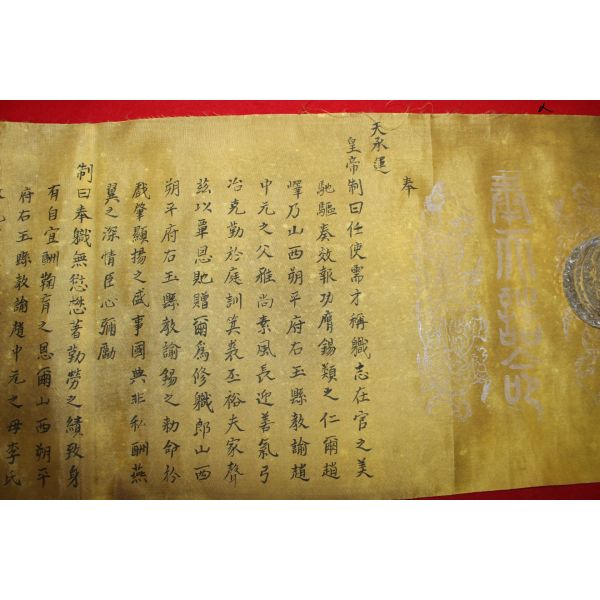 奉天誥命
奉
天承運
皇帝制曰任使需才稱職志在官之美
馳驅奏效報功膺錫類之仁爾趙
嶧乃山西朔平府右玉縣敎諭趙
中元之父雅尚素風長迎善氣弓
冶克勤於庭訓箕裘丕裕夫家聲
茲以覃恩貤贈爾爲修職郎山西
朔平府右玉縣敎諭錫之勅命於
戲肇顯揚之盛事國典非私酬燕
翼之深情臣心彌勵
制曰奉職無愆懋著勤勞之績致身
有自宜酬鞠育之恩爾山西朔平
府右玉縣敎諭趙中元之母李氏